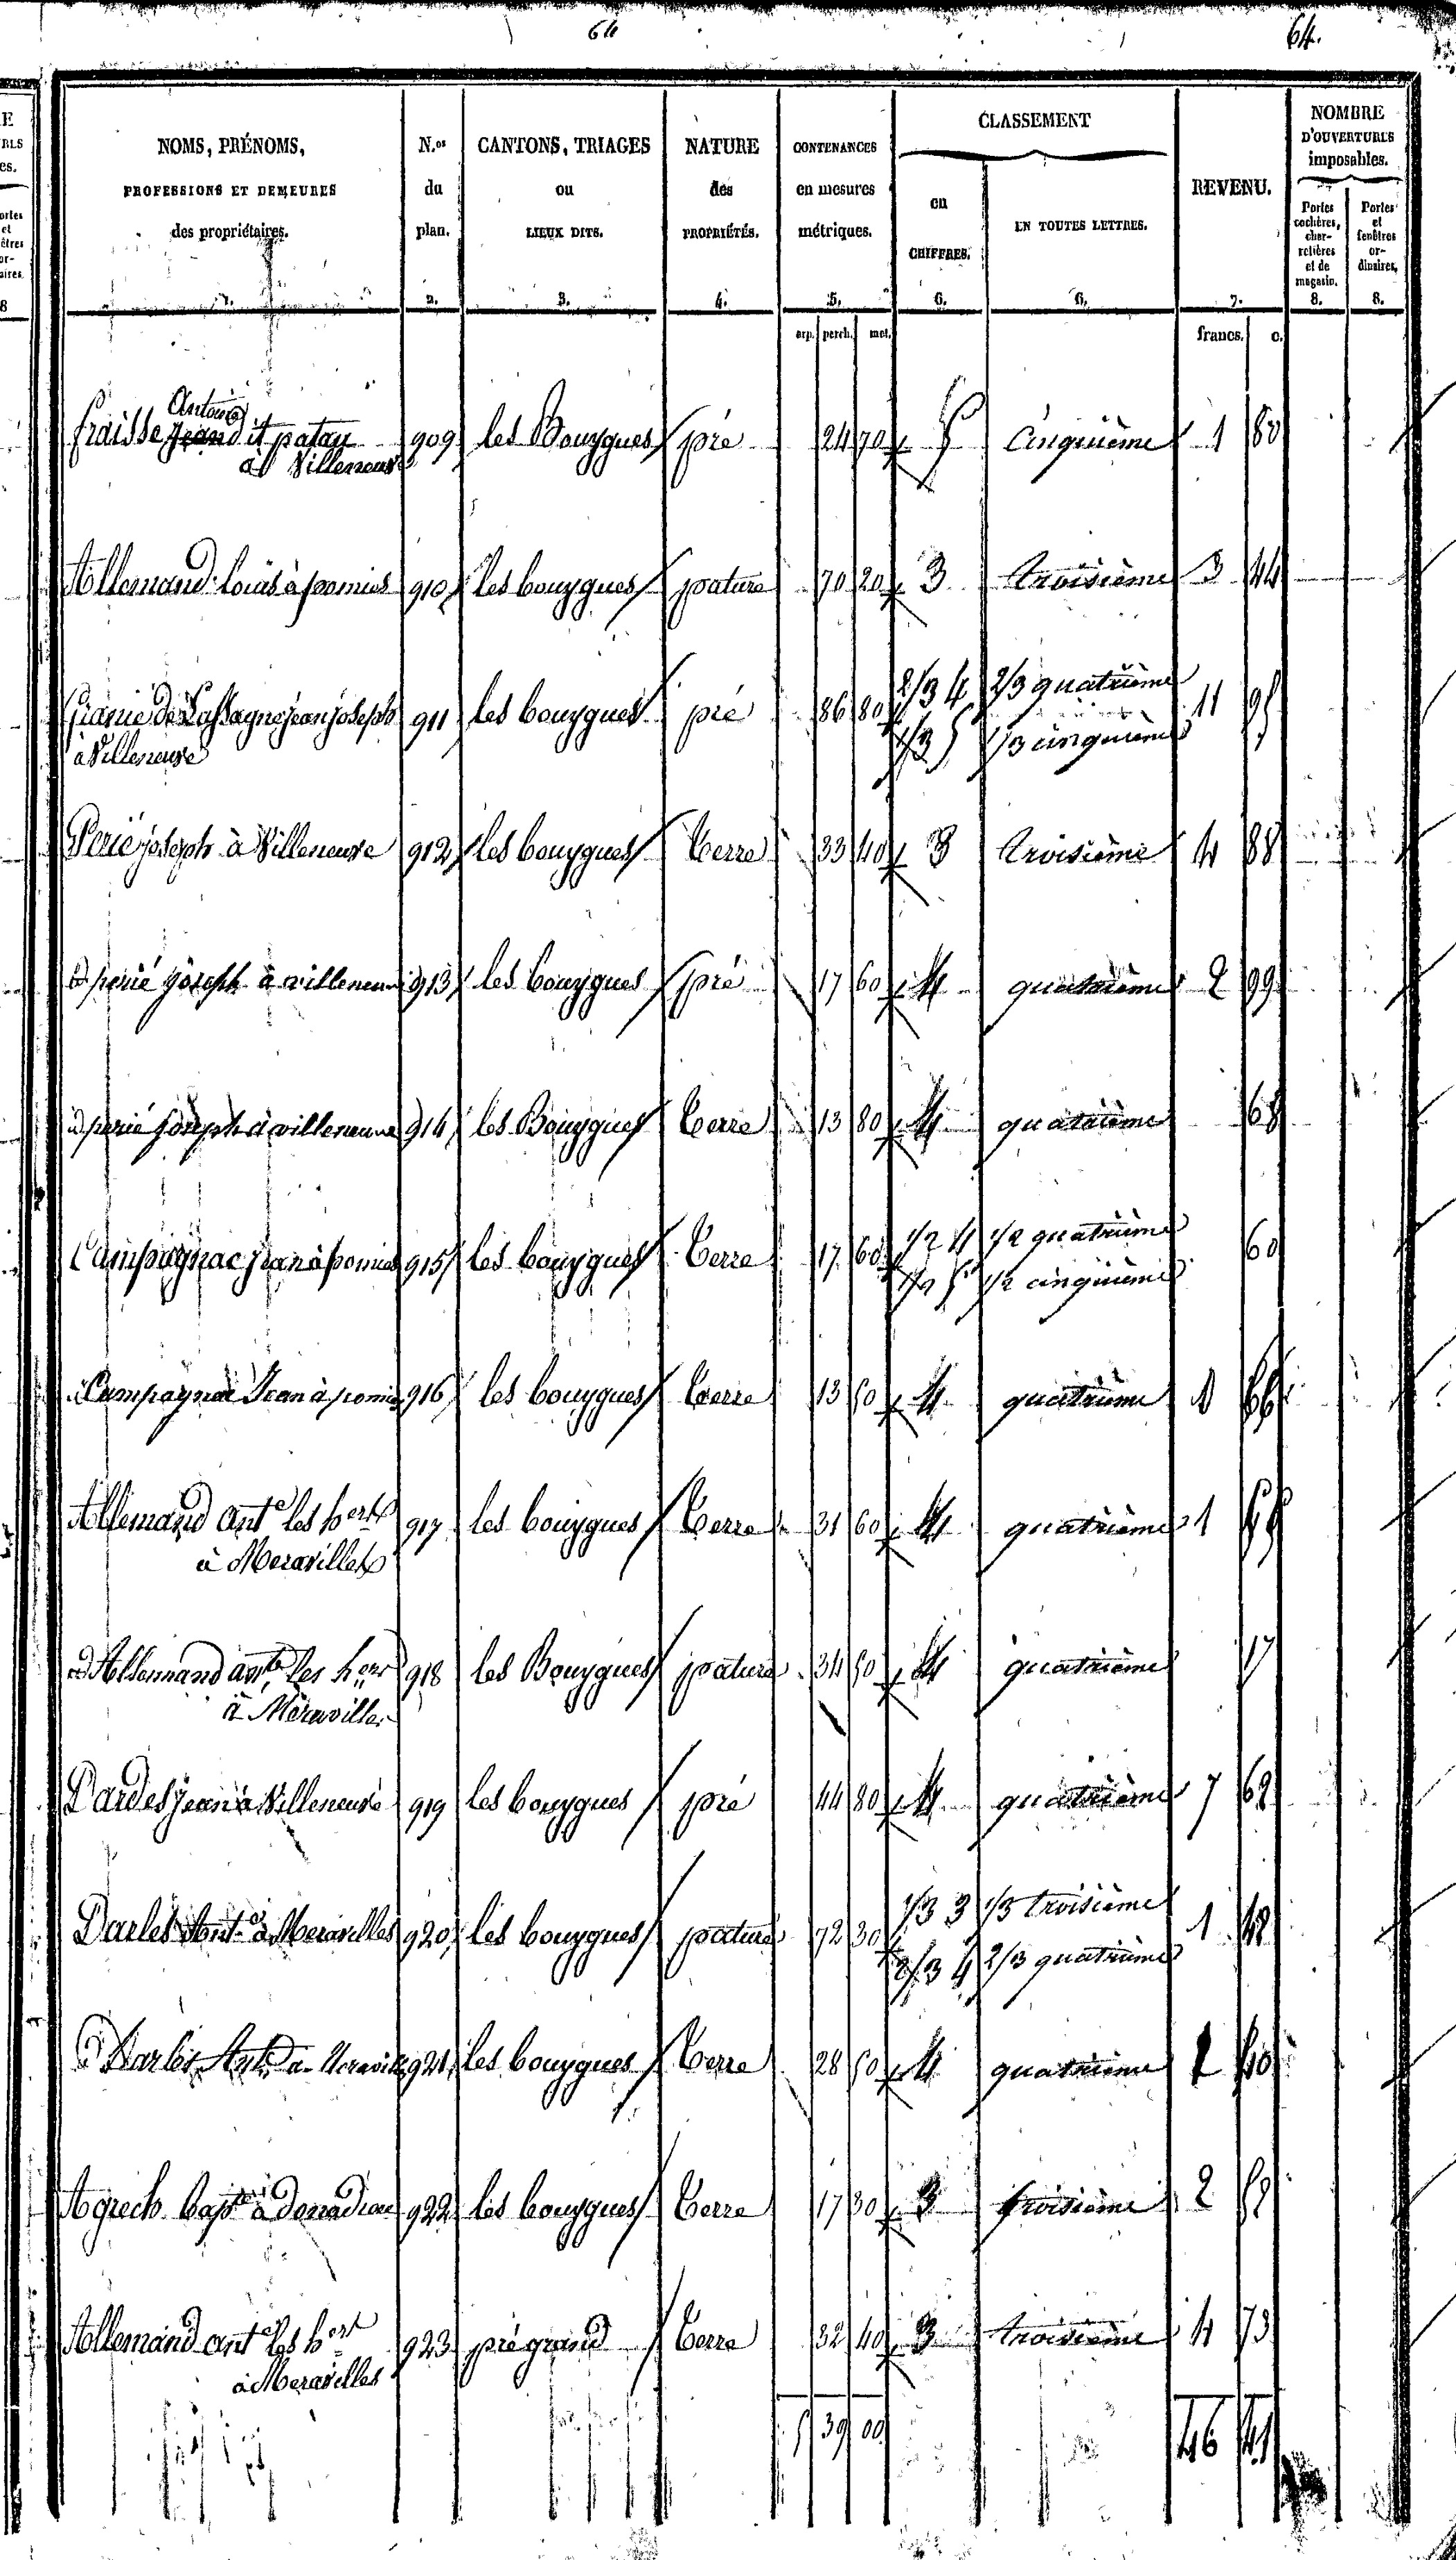 64
64.
NOMS, PRÉNOMS,
PROFESSIONS ET DEMEURES
des propriétaires.
1.
N.os
du
plan.
2.
CANTONS, TRIAGES
ou
LIEUX DITS.
3.
NATURE
des
PROPRIÉTÉS.
4.
CONTENANCES
en mesures
métriques.
5.
CLASSEMENT
en
CHIFFRES.
6.
EN TOUTES LETTRES.
6.
REVENU.
7.
NOMBRE
D'OUVERTURES
imposables.
Portes
cochères,
char-
retières
et de
magasin.
8.
Portes
et
fenêtres
or-
dinaires.
8.
arp. perch. met.
francs. c.
Antoine
fraisse jean dit patau 909 les Bouygues pré 24 70 5 Cinquième 1 80
à Villeneuve
Allemand Louis à pomiés 910 les bouygues pature 70 20 3 troisième 3 44
2/3 4 2/3 quatrième
jean joseph 911 les bouygues pré 86 80 11 95
1/3 5 1/3 cinquième
à Villeneuve
Perié joseph à Villeneuve 912 les bouygues terre 33 40 3 troisième 4 88
d perié joseph à villeneuve 913 les bouygues pré 17 60 4 quatrième 2 99
d perié joseph à villeneuve 914 les Bouygues terre 13 80 4 quatrième 68
1/2 4 1/2 quatrième
Campagnac jean à pomiés 915 les bouygues terre 17 60 60
1/2 5 1/2 cinquième
d Campagnac Jean à pomiés 916 les bouygues terre 13 50 4 quatrième 66
Allemand ant.e les hers 917 les bouygues terre 31 60 4 quatrième 1 55
à Meravilles
d Allemand ant.e les hers 918 les Bouygues pature 34 50 4 quatrième 17
à Meravilles
Dardes jean à Villeneuve 919 les bouygues pré 44 80 4 quatrième 7 62
1/3 3 1/3 troisième
Darles Ant.e à Meravilles 920 les bouygues pature 72 30 1 42
2/3 4 2/3 quatrième
d Darles Ant.e à Meravilles 921 les bouygues terre 28 50 4 quatrième 1 40
Agrech bap.te à 922 les bouygues terre 17 30 3 troisième 2 59
Allemand ant.e les hers 923 pré grand terre 32 40 3 troisième 4 73
à Meravilles
5 39 00 46